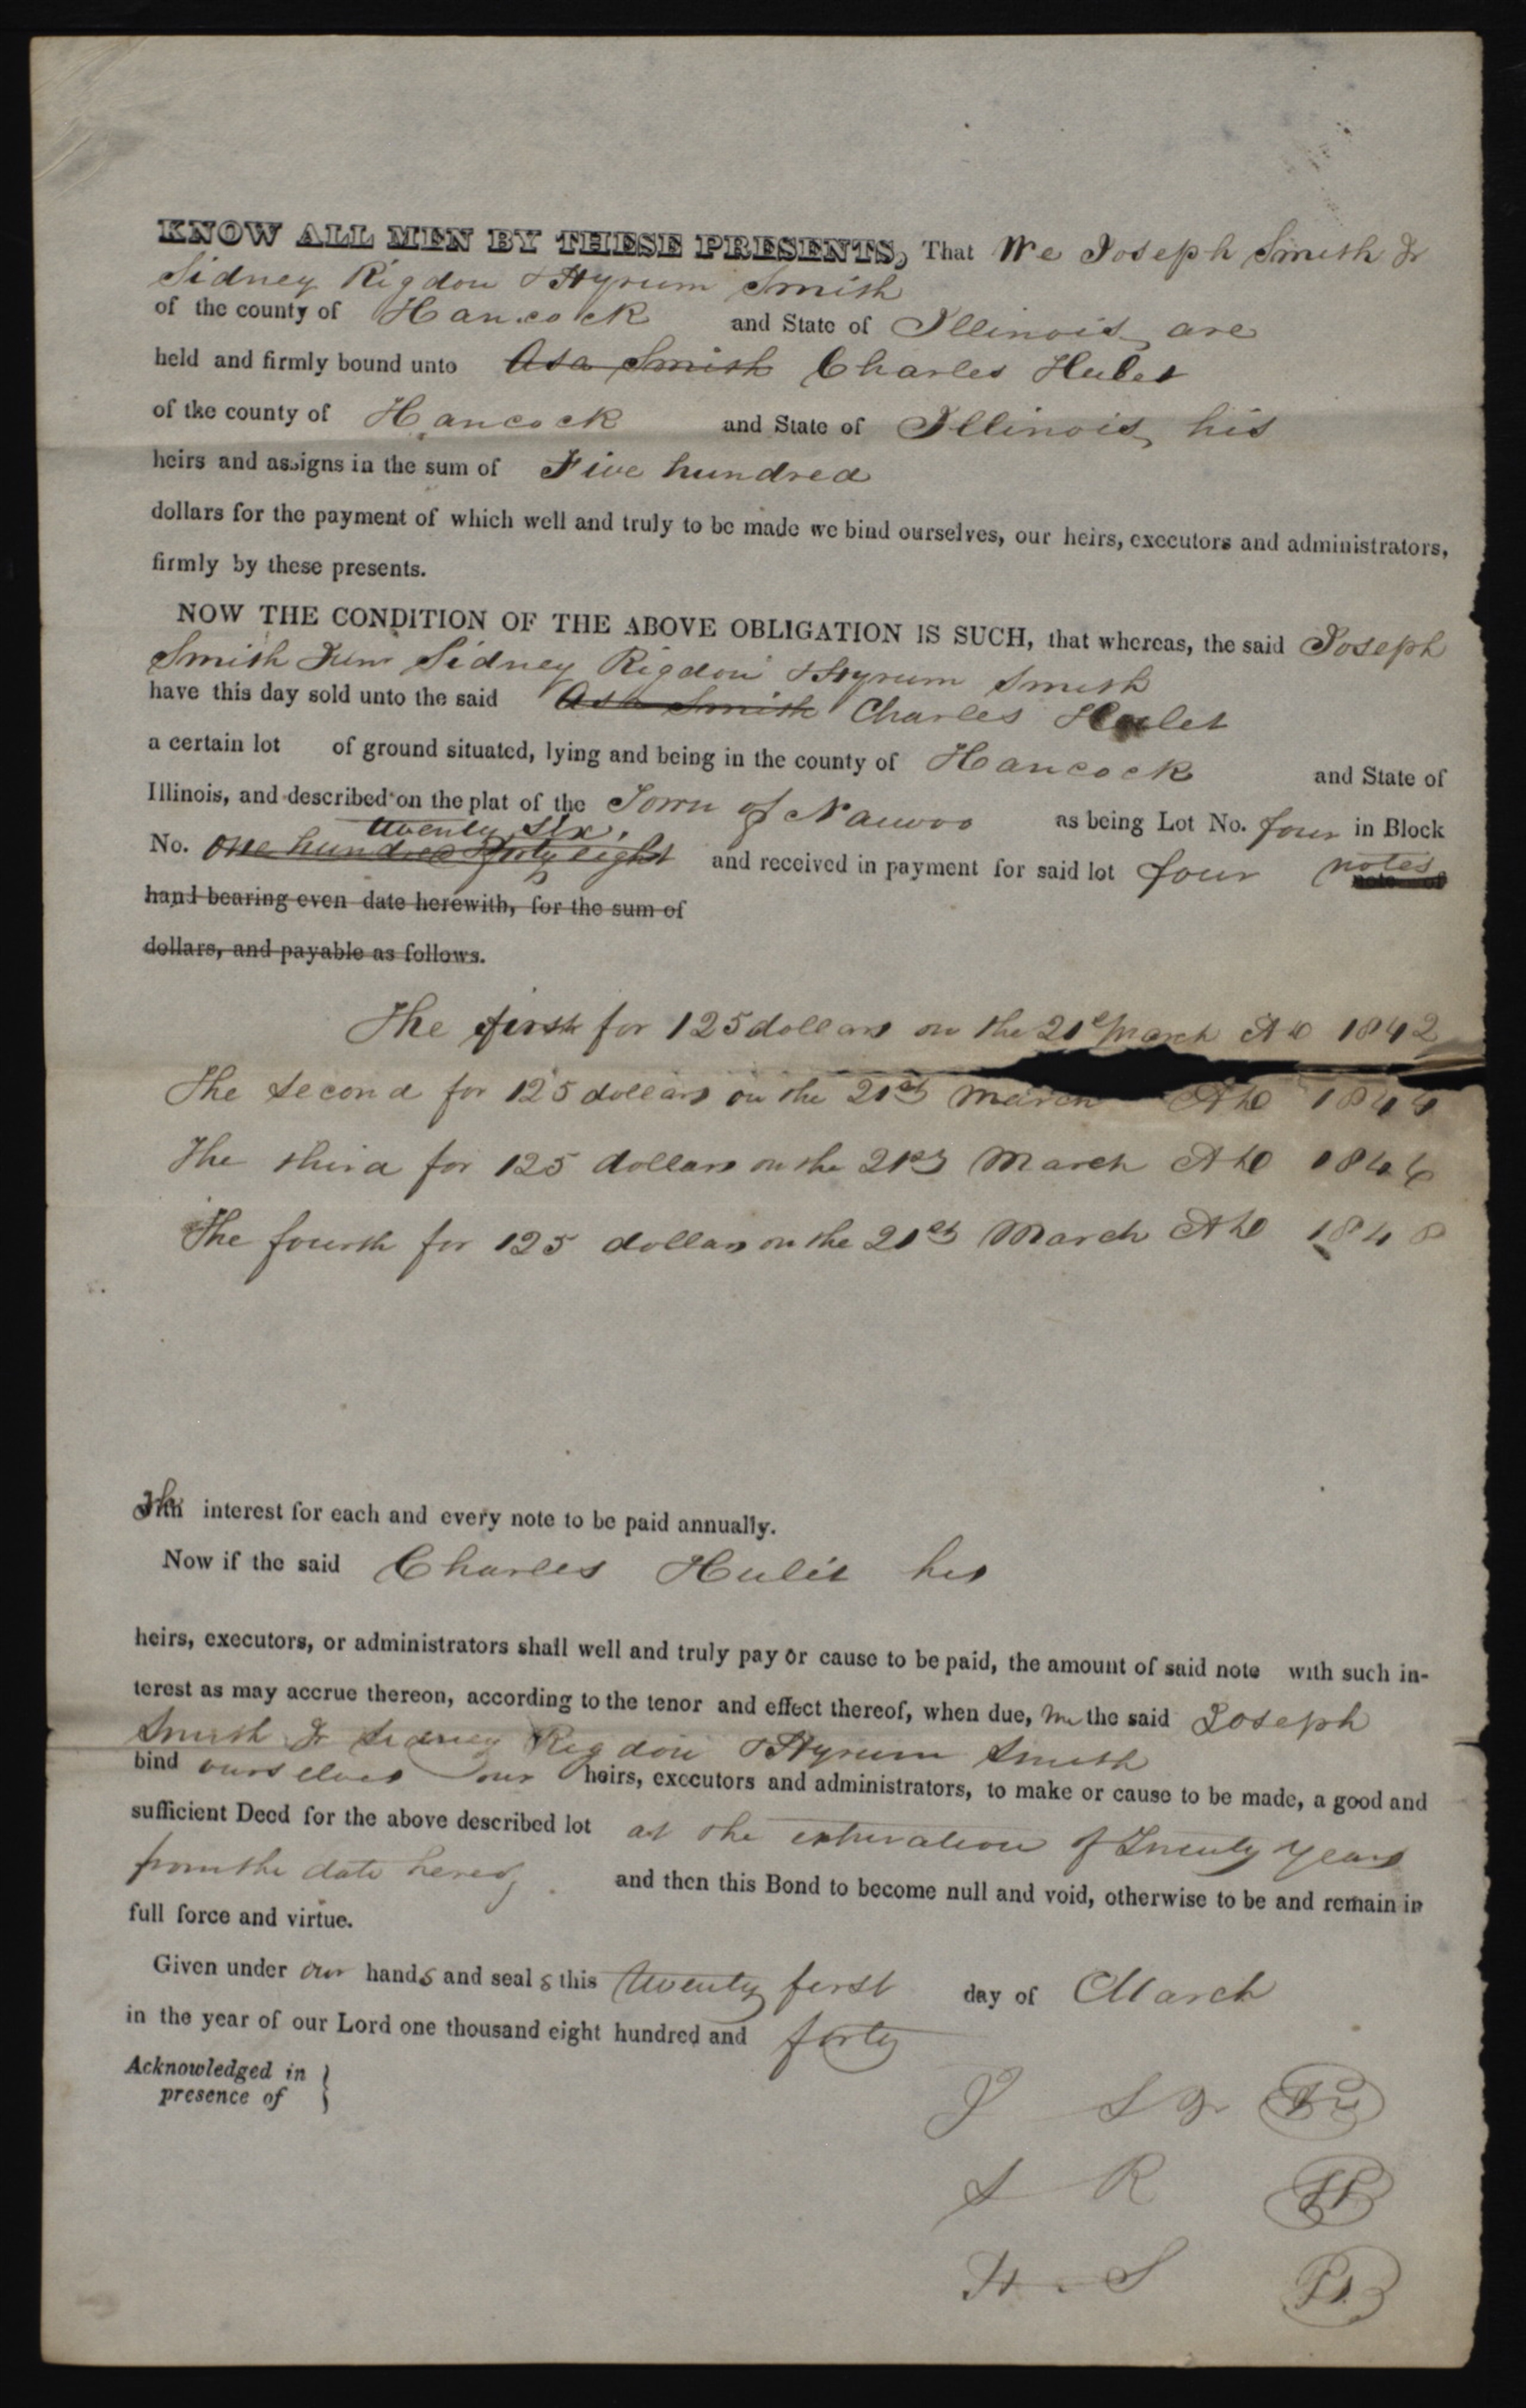 KNOW ALL MEN BY THESE PRESENTS, That We Joseph Smith Jr
Sidney Rigdon & Hyrum Smith
of the county of Hancock and State of Illinois, are
held and firmly bound unto Asa Smith Charles Hulet
of the county of Hancock and State of Illinois, his
heirs and assigns in the sum of Five hundred
dollars for the payment of which well and truly to be made we bind ourselves, our heirs, executors and administrators,
firmly by these presents.
NOW THE CONDITION OF THE ABOVE OBLIGATION IS SUCH, that whereas, the said Joseph
Smith Jun Sidney Rigdon & Hyrum Smith
have this day sold unto the said Asa Smith Charles Hulet
a certain lot of ground situated, lying and being in the county of Hancock and State of
Illinois, and described on the plat of the Town of Nauvoo as being Lot No. four in Block
twenty six.
No. one hundred & forty eight and received in payment for said lot four notes
note of
hand bearing even date herewith, for the sum of
dollars, and payable as follows.
The first for 125 dollars on the 21st March AD 1842
The second for 125 dollars on the 21st March AD 1844
The third for 125 dollars on the 21st March AD 1846
The fourth for 125 dollars on the 21st March AD 1848
The interest for each and every note to be paid annually.
Now if the said Charles Hulet his
heirs, executors, or administrators shall well and truly pay or cause to be paid, the amount of said note with such in-
terest as may accrue thereon, according to the tenor and effect thereof, when due, we the said Joseph
Smith Jr Sidney Rigdon & Hyrum Smith
bind ourselves our heirs, executors and administrators, to make or cause to be made, a good and
sufficient Deed for the above described lot at the of Twenty years
from the date hereof. and then this Bond to become null and void, otherwise to be and remain in
full force and virtue.
Given under our hands and seals this twenty first day of March
in the year of our Lord one thousand eight hundred and forty
Acknowledged in
presence of }
J S Jr
S R
H. S